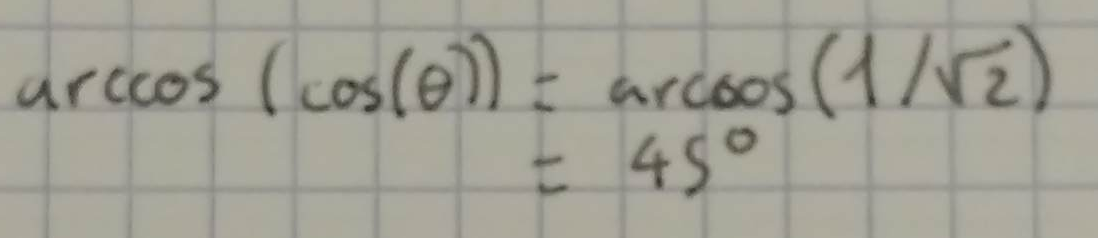 arccos (cos(θ)) = arccos (1/√2)
= 45°